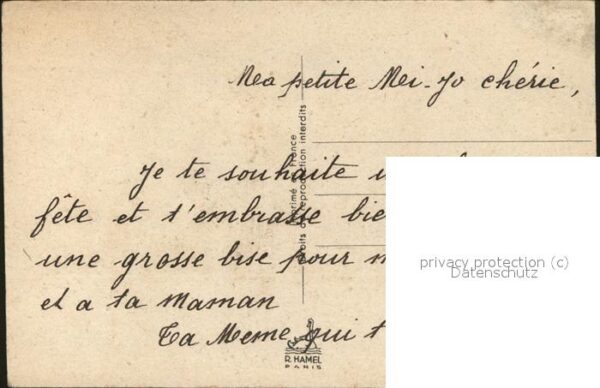 Ma petite Mi-Jo chérie,
Je te souhaite
fête et t'embrasse
une grosse bise pour
et a ta maman
Ta Meme qui t
Imprimé en France
Droits de reproduction interdits
R. HAMEL
PARIS
privacy protection (c)
Datenschutz